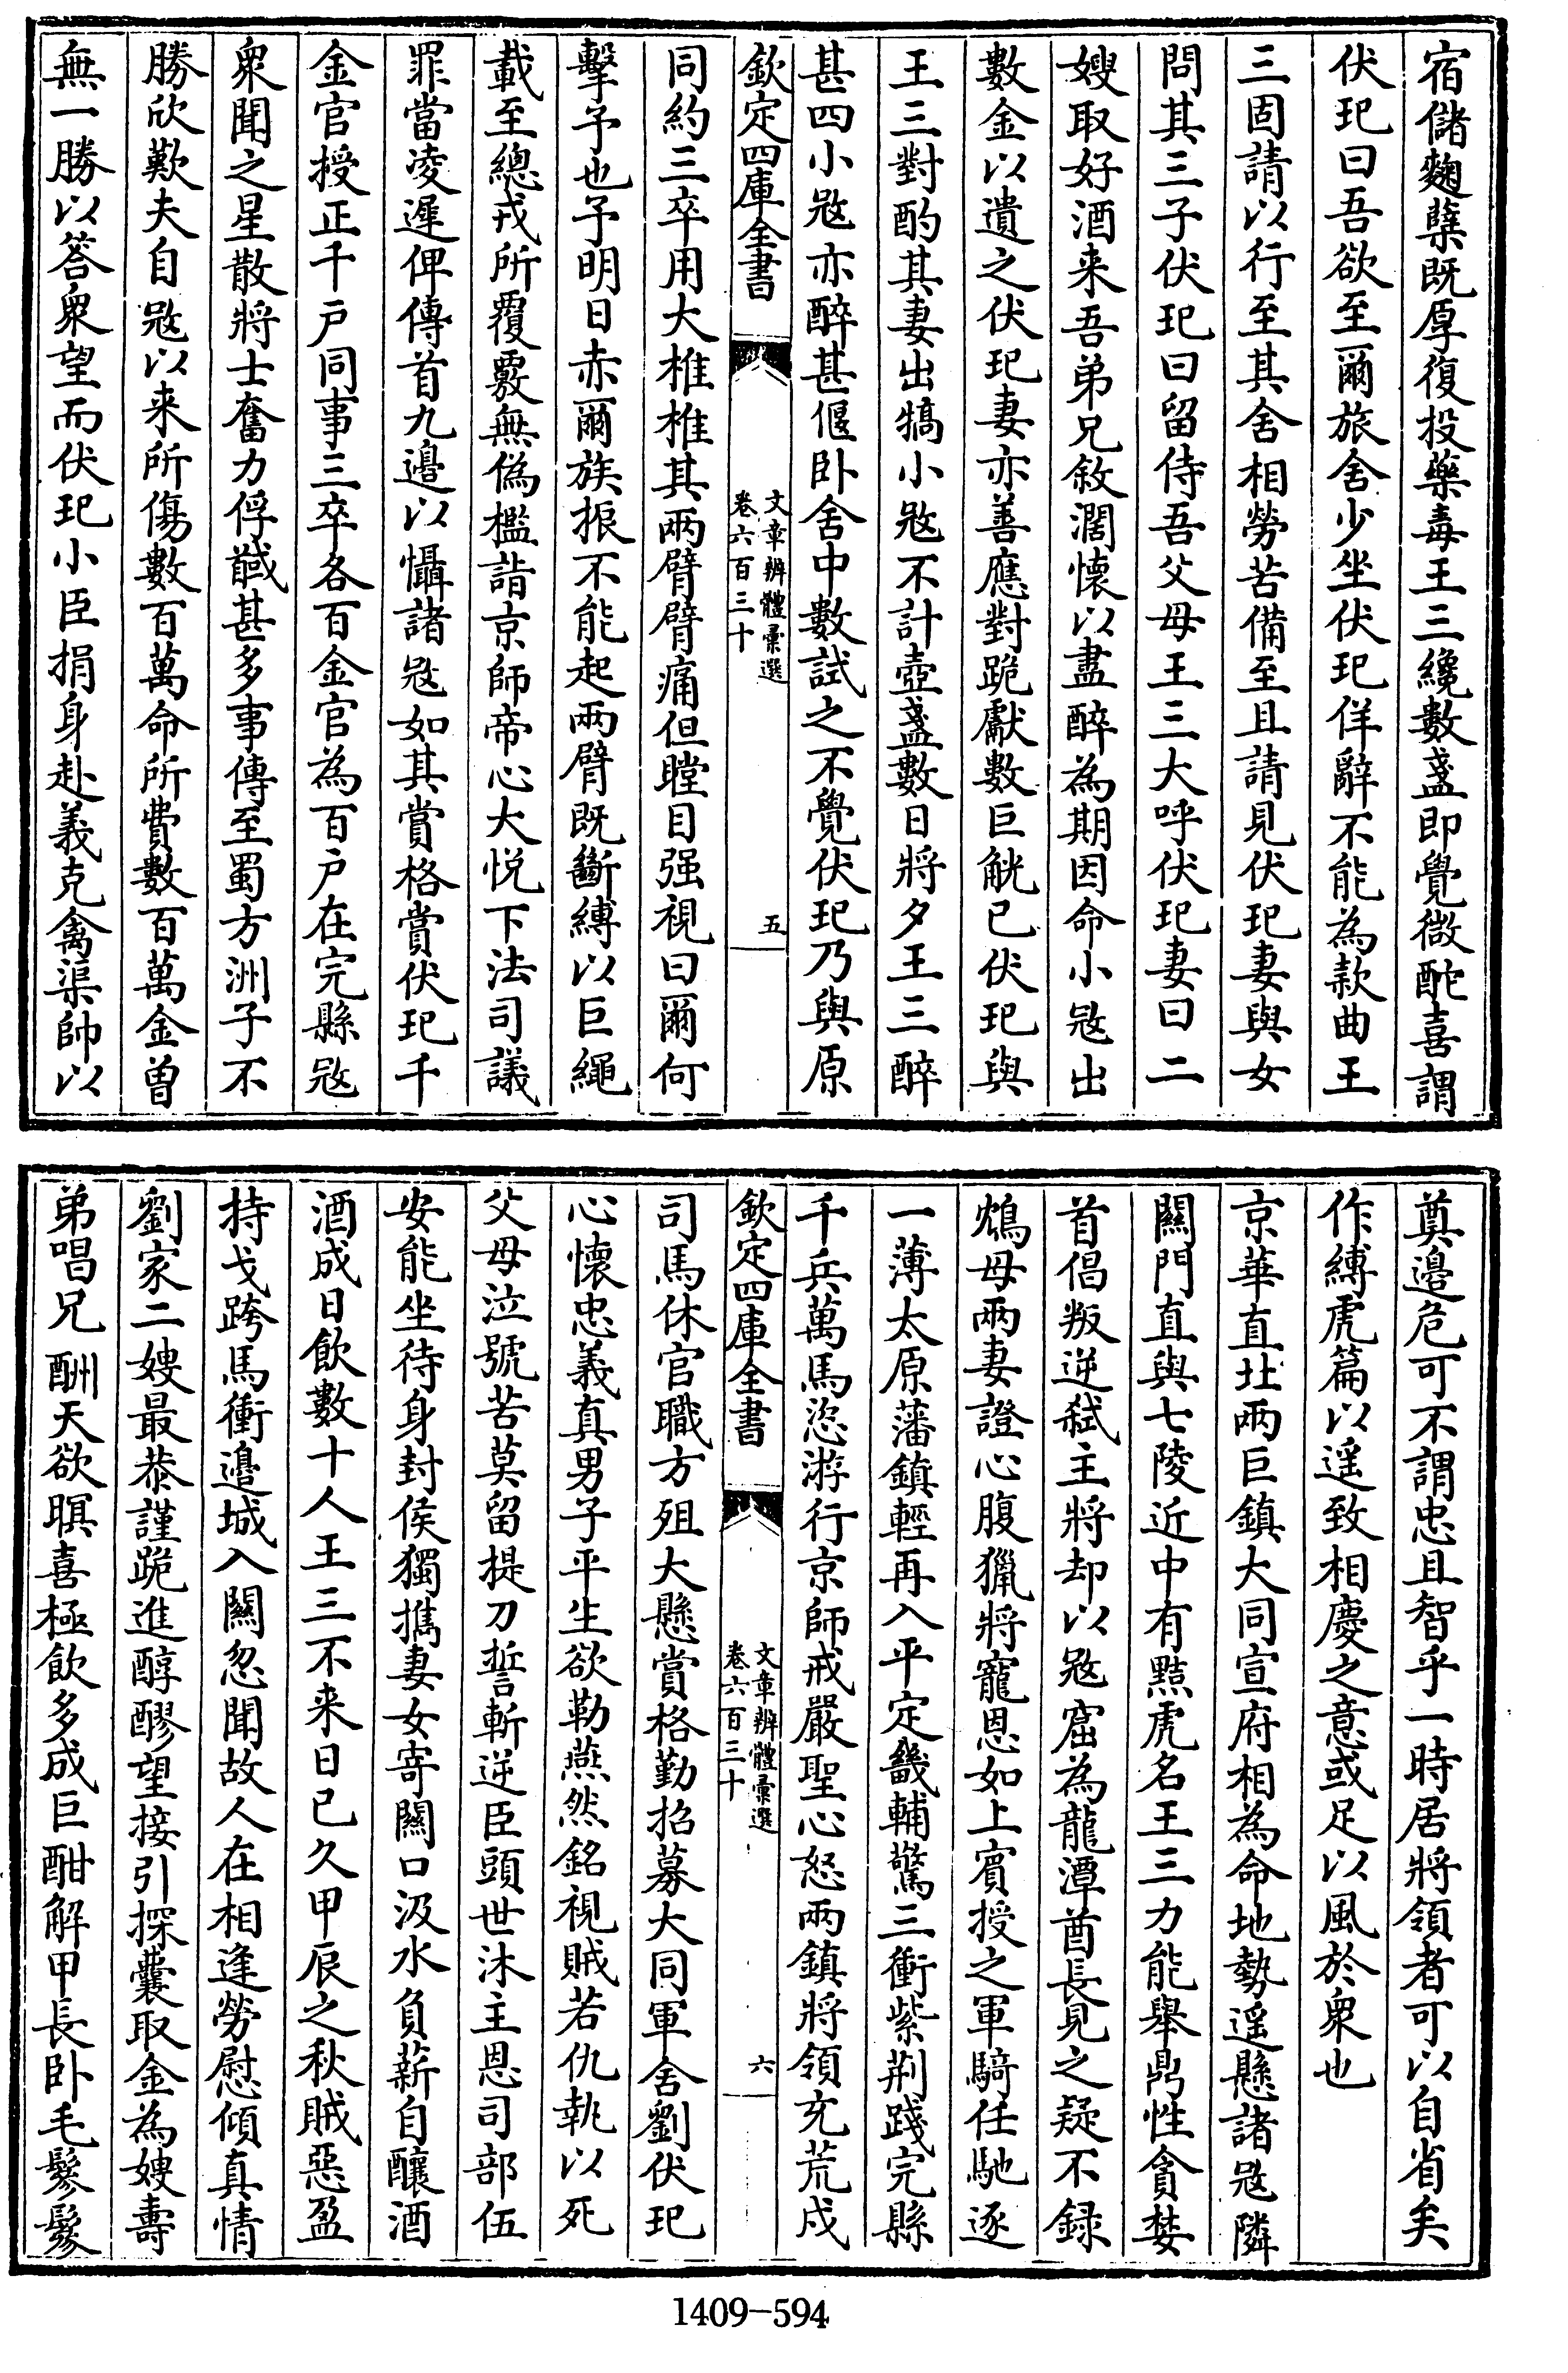 宿儲麴蘖既厚復投藥毒王三纔數盞即覺微酡喜謂
伏玘曰吾欲至爾旅舍少坐伏玘佯辭不能為款曲王
三固請以行至其舍相勞苦備至且請見伏玘妻與女
問其三子伏玘曰留侍吾父母王三大呼伏玘妻曰二
嫂取好酒来吾弟兄敘濶懷以盡醉為期因命小㓂出
數金以遺之伏玘妻亦善應對跪獻數巨觥已伏玘與
王三對酌其妻出犒小㓂不計壺盞數日將夕王三醉
甚四小㓂亦醉甚偃卧舍中數試之不覺伏玘乃與原
欽定四庫全書
文章辨體彚選
卷六百三十
五
同約三卒用大椎椎其兩臂臂痛但瞠目强視曰爾何
擊予也予明日赤爾族掁不能起兩臂既斷縛以巨繩
載至總戎所覆覈無偽檻詣京師帝心大悦下法司議
罪當凌遲俾傳首九邉以懾諸㓂如其賞格賞伏玘千
金官授正千户同事三卒各百金官為百户在完縣㓂
衆聞之星散將士奮力俘馘甚多事傳至蜀方洲子不
勝欣歎夫自㓂以来所傷數百萬命所費數百萬金曽
無一勝以答衆望而伏玘小臣捐身赴義克禽渠帥以
奠邉危可不謂忠且智乎一時居將領者可以自省矣
作縛虎篇以遥致相慶之意或足以風於衆也
京華直北兩巨鎮大同宣府相為命地勢遥懸諸㓂隣
闗門直與七陵近中有黠虎名王三力能舉鼎性貪婪
首倡叛逆弑主將却以㓂窟為龍潭酋長見之疑不録
鴆母兩妻證心腹獵將寵恩如上賓授之軍騎任馳逐
一薄太原藩鎮輕再入平定畿輔驚三衝紫荆踐完縣
千兵萬馬恣游行京師戒嚴聖心怒兩鎮將領充荒戍
欽定四庫全書
文章辨體彚選
卷六百三十
六
司馬休官職方殂大懸賞格勤招募大同軍舍劉伏玘
心懷忠義真男子平生欲勒燕然銘視賊若仇執以死
父母泣號苦莫留提刀誓斬逆臣頭世沐主恩司部伍
安能坐待身封侯獨携妻女寄闗口汲水負薪自釀酒
酒成日飲數十人王三不来日已久甲辰之秋賊惡盈
持戈跨馬衝邉城入闗忽聞故人在相逢勞慰傾真情
劉家二嫂最恭謹跪進醇醪望接引探囊取金為嫂壽
弟唱兄酬天欲暝喜極飲多成巨酣解甲長卧毛鬖鬖
1409-594